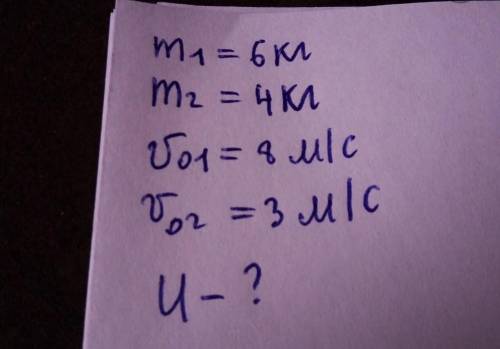 m1 = 6 кг
m2 = 4 кг
v01 = 8 м/с
v02 = 3 м/с
u - ?